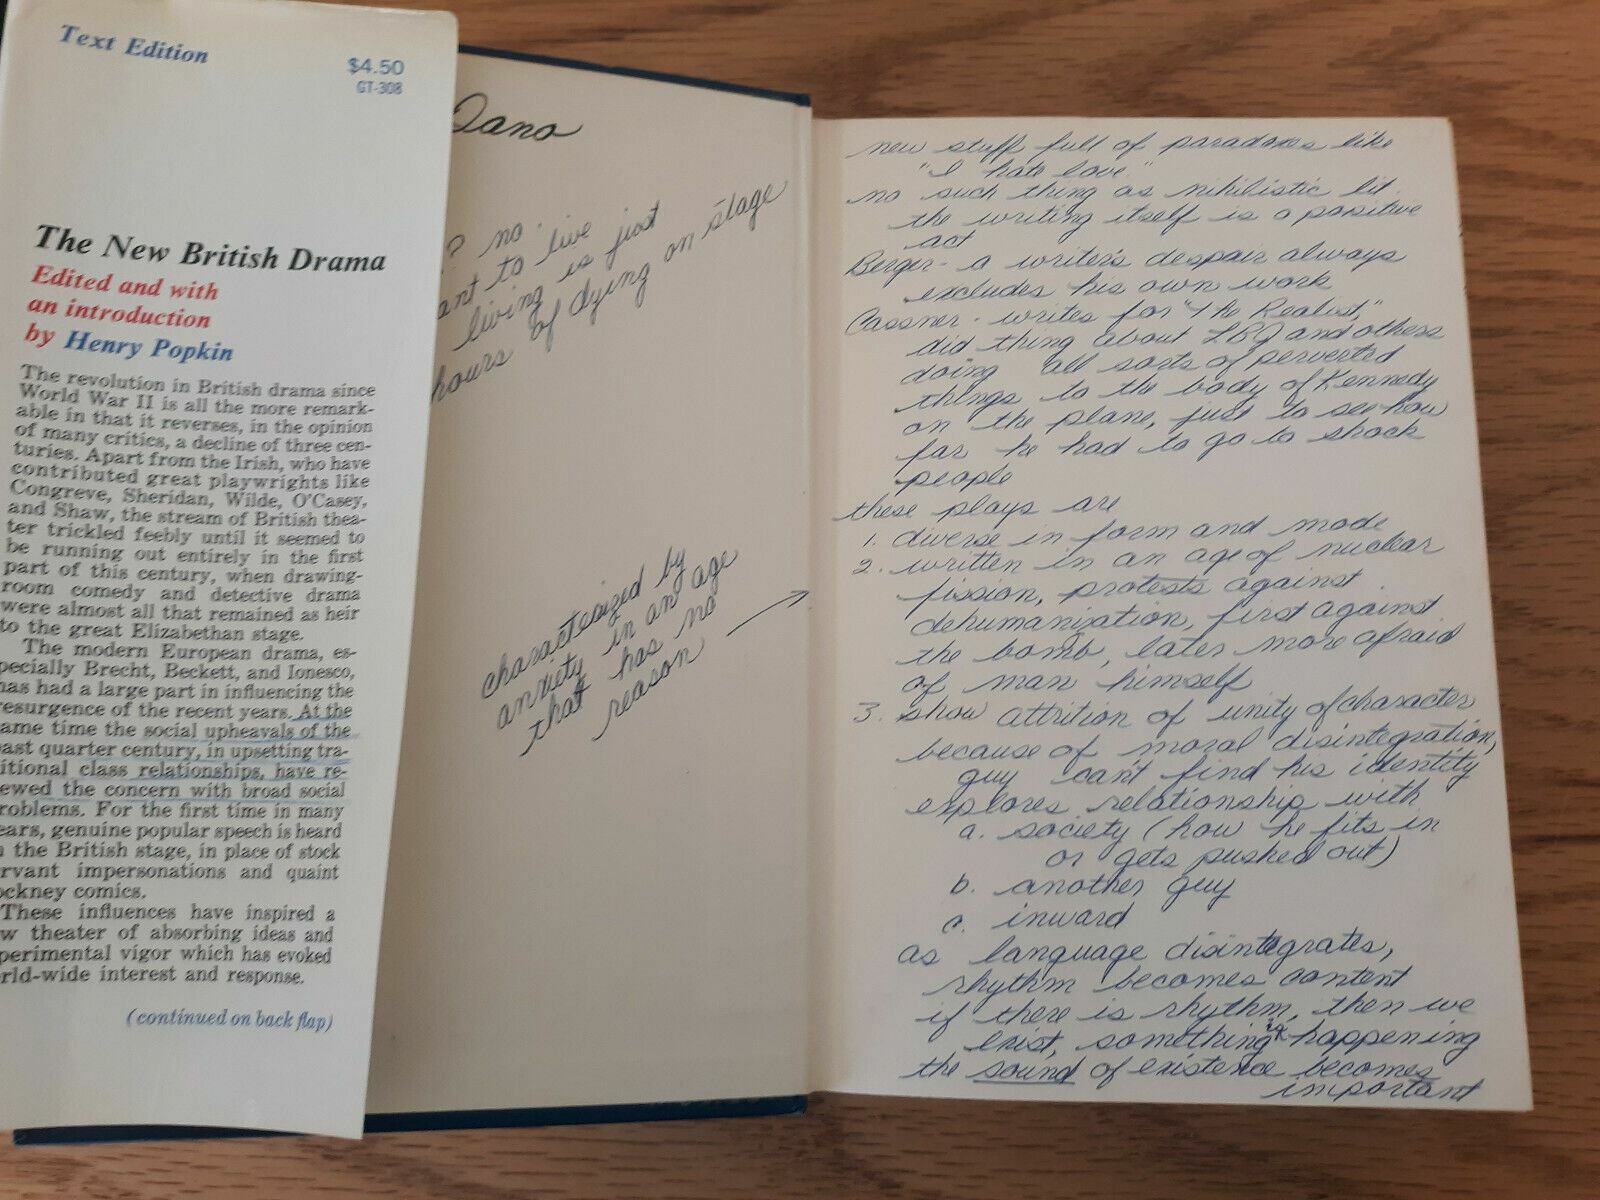 Text Edition
$4.50
GT-308
The New British Drama
Edited and with
an introduction
by Henry Popkin
The revolution in British drama since
World War II is all the more remark-
able in that it reverses, in the opinion
of many critics, a decline of three cen-
turies. Apart from the Irish, who have
contributed great playwrights like
Congreve, Sheridan, Wilde, O'Casey,
and Shaw, the stream of British thea-
ter trickled feebly until it seemed to
be running out entirely in the first
part of this century, when drawing-
room comedy and detective drama
were almost all that remained as heir
to the great Elizabethan stage.
The modern European drama, es-
pecially Brecht, Beckett, and Ionesco,
has had a large part in influencing the
resurgence of the recent years. At the
ame time the social upheavals of the
past quarter century, in upsetting tra-
itional class relationships, have re-
ewed the concern with broad social
roblems. For the first time in many
ears, genuine popular speech is heard
the British stage, in place of stock
rvant impersonations and quaint
ockney comics.
These influences have inspired a
w theater of absorbing ideas and
perimental vigor which has evoked
rld-wide interest and response.
(continued on back flap)
Dano
? no.
ant to live
living is just
hours of dying on stage
characterized by
anxiety in an age
that has no
reason
new stuff full of paradoxes like
"I hate love"
no such thing as nihilistic lit.
the writing itself is a positive
act
Berger - a writer's despair always
excludes his own work
Cassner - writes for "The Realist,"
did thing about LBJ and others
doing all sorts of perverted
things to the body of Kennedy
on the plane, just to see how
far he had to go to shock
people
these plays are
1. diverse in form and mode
2. written in an age of nuclear
fission, protests against
dehumanization, first against
the bomb, later more afraid
of man himself
3. show attrition of unity of character
because of moral disintegration,
guy can't find his identity
explores relationship with
a. society (how he fits in
or gets pushed out)
b. another guy
c. inward
as language disintegrates,
rhythm becomes content
if there is rhythm, then we
exist, something is happening
the sound of existence becomes
important